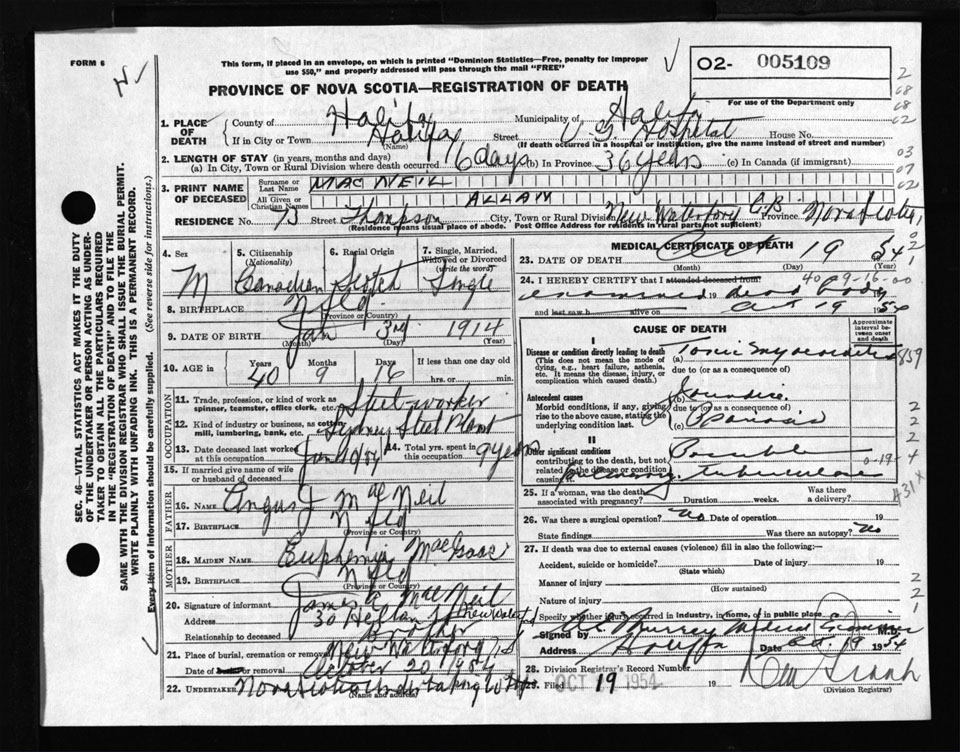 FORM 6
This form, if placed in an envelope, on which is printed "Dominion Statistics—Free, penalty for improper
use $50," and properly addressed will pass through the mail "FREE"
02- 005109
PROVINCE OF NOVA SCOTIA—REGISTRATION OF DEATH
For use of the Department only
1. PLACE OF DEATH
County of Halifax Municipality of Halifax
If in City or Town Halifax Street V G Hospital House No.
(Name) (If death occurred in a hospital or institution, give the name instead of street and number)
2. LENGTH OF STAY (in years, months and days)
(a) In City, Town or Rural Division where death occurred 16 days (b) In Province 36 years (c) In Canada (if immigrant)
3. PRINT NAME OF DECEASED
Surname or Last Name MAC NEIL
All Given or Christian Names ALLAN
RESIDENCE No. 75 Street Thompson City, Town or Rural Division New Waterford C.B. Province Nova Scotia
(Residence means usual place of abode. Post Office Address for residents in rural parts not sufficient)
4. Sex M
5. Citizenship (Nationality) Canadian
6. Racial Origin Scotch
7. Single, Married, Widowed or Divorced (write the word) Single
8. BIRTHPLACE Nfld
(Province or Country)
9. DATE OF BIRTH Jan 3rd 1914
(Month) (Day) (Year)
10. AGE in Years 40 Months 9 Days 16 If less than one day
hrs. or min.
OCCUPATION
11. Trade, profession, or kind of work as
spinner, teamster, office clerk, etc. Steel-worker
12. Kind of industry or business, as cotton-
mill, lumbering, bank, etc. Sydney Steel Plant
13. Date deceased last worked at this occupation Jan
14. Total yrs. spent in this occupation 9 years
15. If married give name of wife
or husband of deceased
FATHER
16. NAME Angus J MacNeil
17. BIRTHPLACE Nfld
MOTHER
18. MAIDEN NAME Euphemia MacIsaac
19. BIRTHPLACE Nfld
(Province or Country)
20. Signature of informant James MacNeil
Address 30 New Waterford
Relationship to deceased Brother
21. Place of burial, cremation or removal New Waterford
Date of burial or removal October 20 1954
22. UNDERTAKER Nova Scotia Undertaking
(Name and address)
MEDICAL CERTIFICATE OF DEATH
23. DATE OF DEATH Oct 19 54
(Month) (Day) (Year)
24. I HEREBY CERTIFY that I attended deceased from 40-9-16-00
examined 19 dead body
and last saw h alive on Oct 19 1954
CAUSE OF DEATH
Approximate interval between onset and death
I
Disease or condition directly leading to death (a) Toxic myocarditis 859
This does not mean the mode of
dying, e.g., heart failure, asthenia,
etc. It means the disease, injury, or
complication which caused death.)
due to (or as a consequence of)
Antecedent causes
(b) Jaundice
Morbid conditions, if any, giving
rise to the above cause, stating the
underlying condition last.
due to (or as a consequence of)
(c)
II
Other significant conditions Possible
contributing to the death, but not
related to the disease or condition
causing it. pulmonary tuberculosis
25. If a woman, was the death
associated with pregnancy? Duration weeks. Was there a delivery?
26. Was there a surgical operation? No Date of operation 19
State findings Was there an autopsy? No
27. If death was due to external causes (violence) fill in also the following:—
Accident, suicide or homicide? Date of injury 19
(State which)
Manner of injury
(How sustained)
Nature of injury
Specify whether injury occurred in industry, in home, or in public place
Signed by Murray Medical Examiner M.D.
Address Halifax Date Oct 1954
28. Division Registrar's Record Number
29. Filed OCT 19 1954 19
(Division Registrar)
SEC. 46—VITAL STATISTICS ACT MAKES IT THE DUTY
OF THE UNDERTAKER OR PERSON ACTING AS UNDER-
TAKER TO OBTAIN ALL THE PARTICULARS REQUIRED
IN THE "REGISTRATION OF DEATH" AND TO FILE THE
SAME WITH THE DIVISION REGISTRAR WHO SHALL ISSUE THE BURIAL PERMIT.
WRITE PLAINLY WITH UNFADING INK. THIS IS A PERMANENT RECORD.
Every item of Information should be carefully supplied. (See reverse side for instructions.)